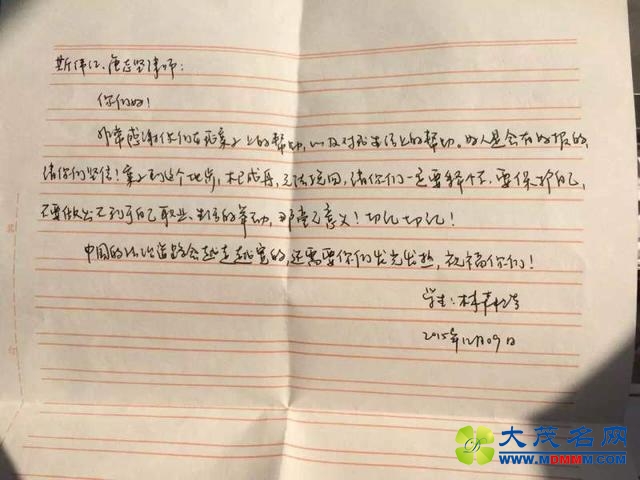 斯伟江、唐志坚律师：
你们好！
非常感谢你们在我案子上的帮助，以及对我生活上的帮助。好人是会有好报的，
请你们坚信！案子到这个地步，木已成舟，无法挽回，请你们一定要释怀，要保护自己，
不要做出不利于自己职业、生活的举动，那毫无意义！切记切记！
中国的法治道路会越走越宽的，还需要你们发光发热，祝福你们！
学生：林森浩
2015年12月09日
大茂名网
WWW.MDMMM.COM